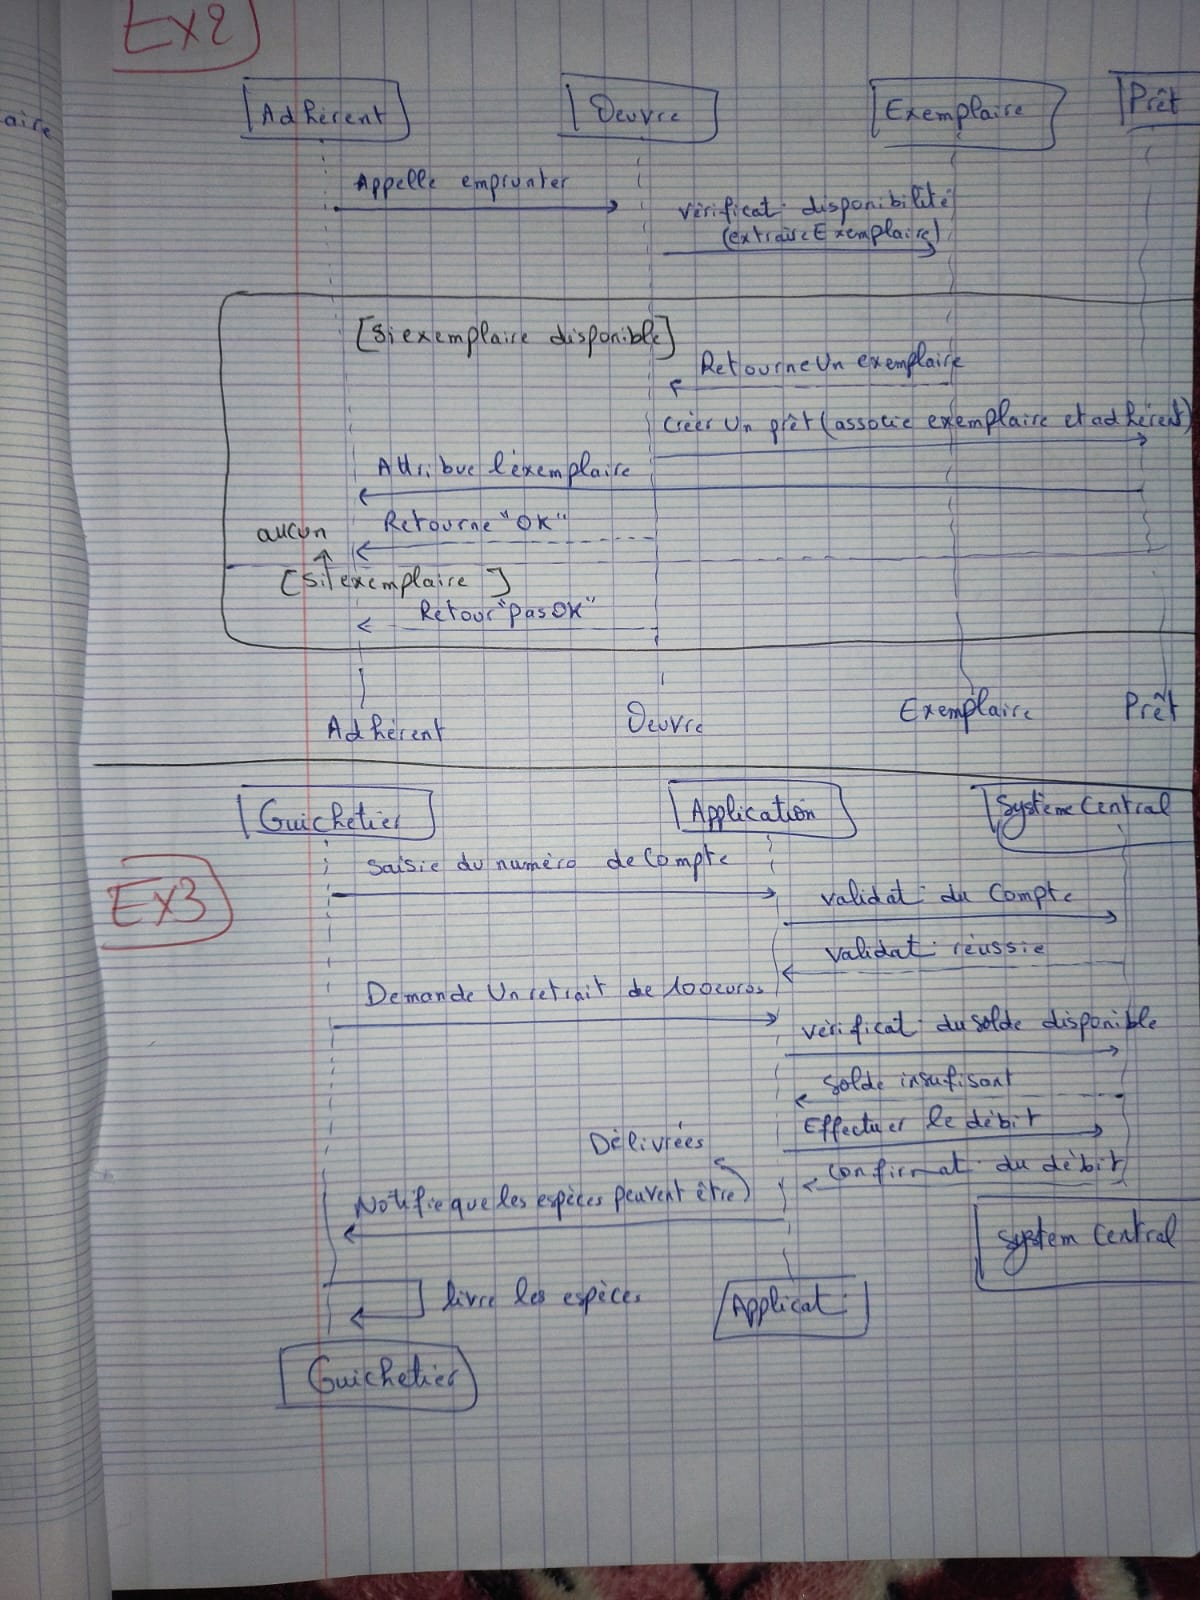 Ex2
aire
Adhérent
Oeuvre
Exemplaire
Prêt
Appelle emprunter
vérificat° disponibilité
(extraireExemplaire)
[Si exemplaire disponible]
Retourne Un exemplaire
créer Un prêt (associe exemplaire et adhérent)
Attribue l'exemplaire
Retourne "OK"
aucun
[Si exemplaire ]
Retour "pas OK"
Adhérent
Oeuvre
Exemplaire
Prêt
Guichetier
Application
Système Central
Ex3
Saisie du numéro de Compte
validat° du Compte
validat° réussie
Demande Un retrait de 100 euros
vérificat° du solde disponible
Solde insufisant
Effectuer le débit
Confirmat° du débit
Délivrées
Notifie que les espèces peuvent être
System Central
livre les espèces
Applicat°
Guichetier